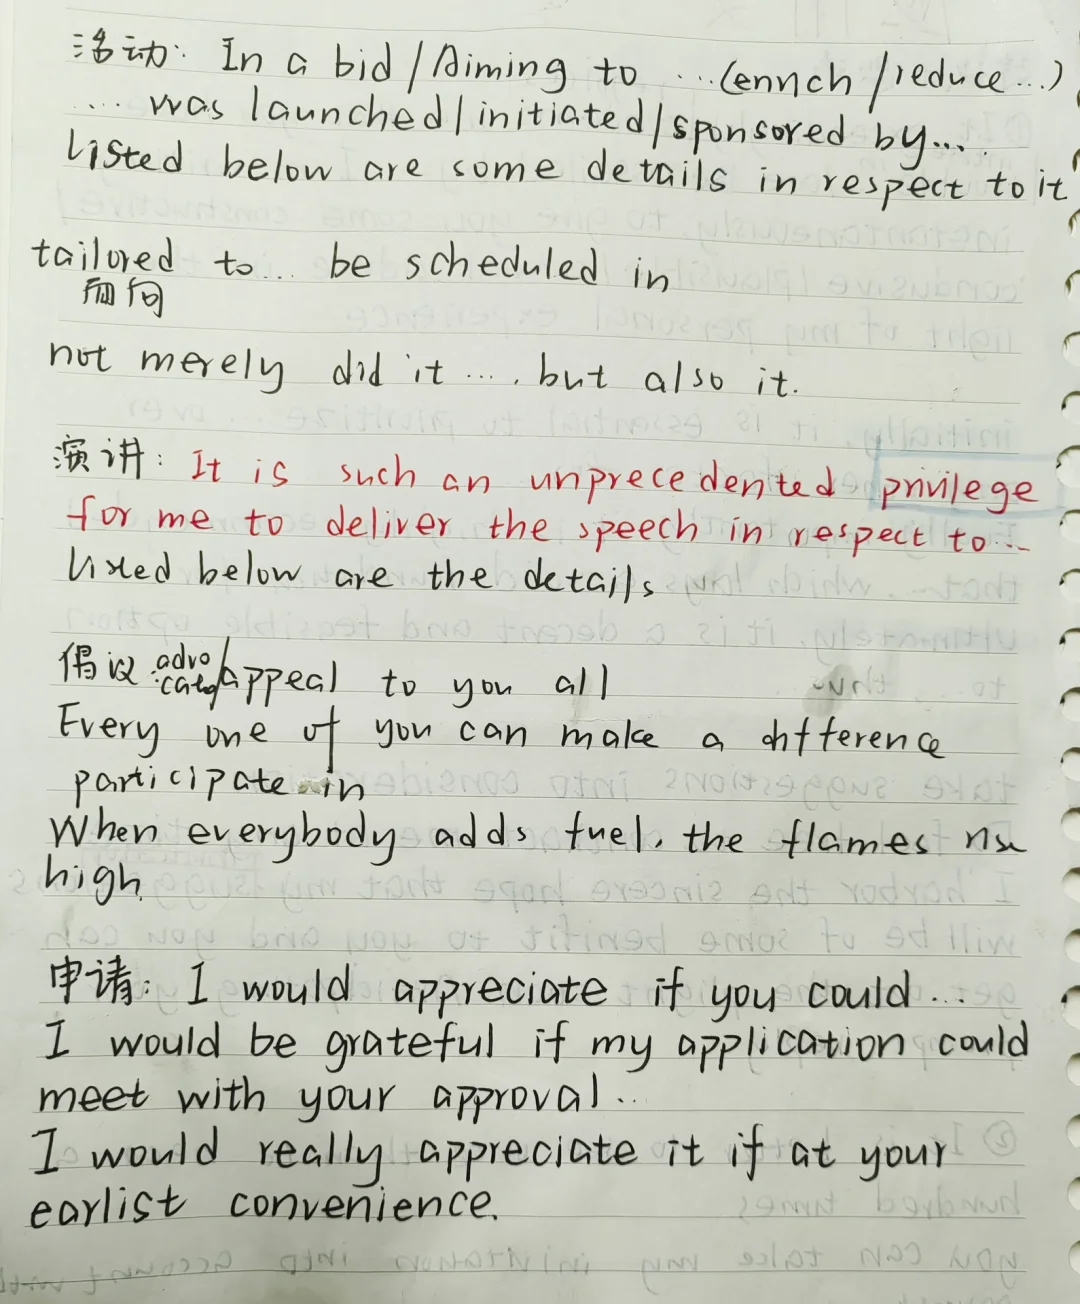 活动: In a bid/Aiming to ...(enrich/reduce...)
.... was launched/initiated/sponsored by....
Listed below are some details in respect to it
tailored to... be scheduled in
面向
not merely did it .... but also it.
演讲: It is such an unprecedented privilege
for me to deliver the speech in respect to...
listed below are the details
倡议: advocate/appeal to you all
Every one of you can make a difference
participate in
When everybody adds fuel, the flames rise
high.
申请: I would appreciate if you could...
I would be grateful if my application could
meet with your approval...
I would really appreciate it if at your
earlist convenience.